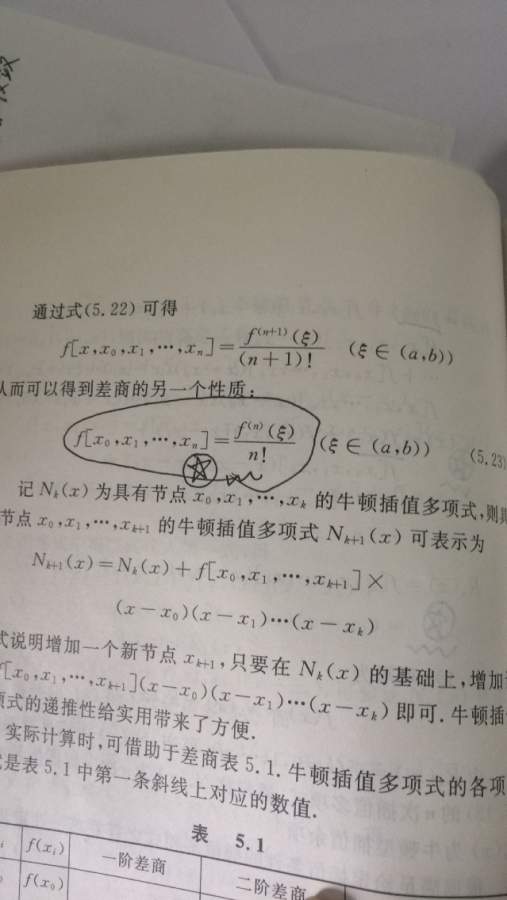 通过式(5.22)可得
f[x,x₀,x₁,⋯,xₙ]=f⁽ⁿ⁺¹⁾(ξ)/(n+1)! (ξ∈(a,b))
从而可以得到差商的另一个性质:
f[x₀,x₁,⋯,xₙ]=f⁽ⁿ⁾(ξ)/n! (ξ∈(a,b)) (5.23)
记 Nₖ(x)为具有节点 x₀,x₁,⋯,xₖ 的牛顿插值多项式,则
节点 x₀,x₁,⋯,xₖ₊₁ 的牛顿插值多项式 Nₖ₊₁(x)可表示为
Nₖ₊₁(x)=Nₖ(x)+f[x₀,x₁,⋯,xₖ₊₁]×
(x-x₀)(x-x₁)⋯(x-xₖ)
式说明增加一个新节点 xₖ₊₁,只要在 Nₖ(x)的基础上,增加
f[x₀,x₁,⋯,xₖ₊₁](x-x₀)(x-x₁)⋯(x-xₖ)即可.牛顿插
项式的递推性给实用带来了方便.
实际计算时,可借助于差商表 5.1.牛顿插值多项式的各项
是表 5.1 中第一条斜线上对应的数值.
表 5.1
i f(xᵢ) 一阶差商 二阶差商
f(x₀)